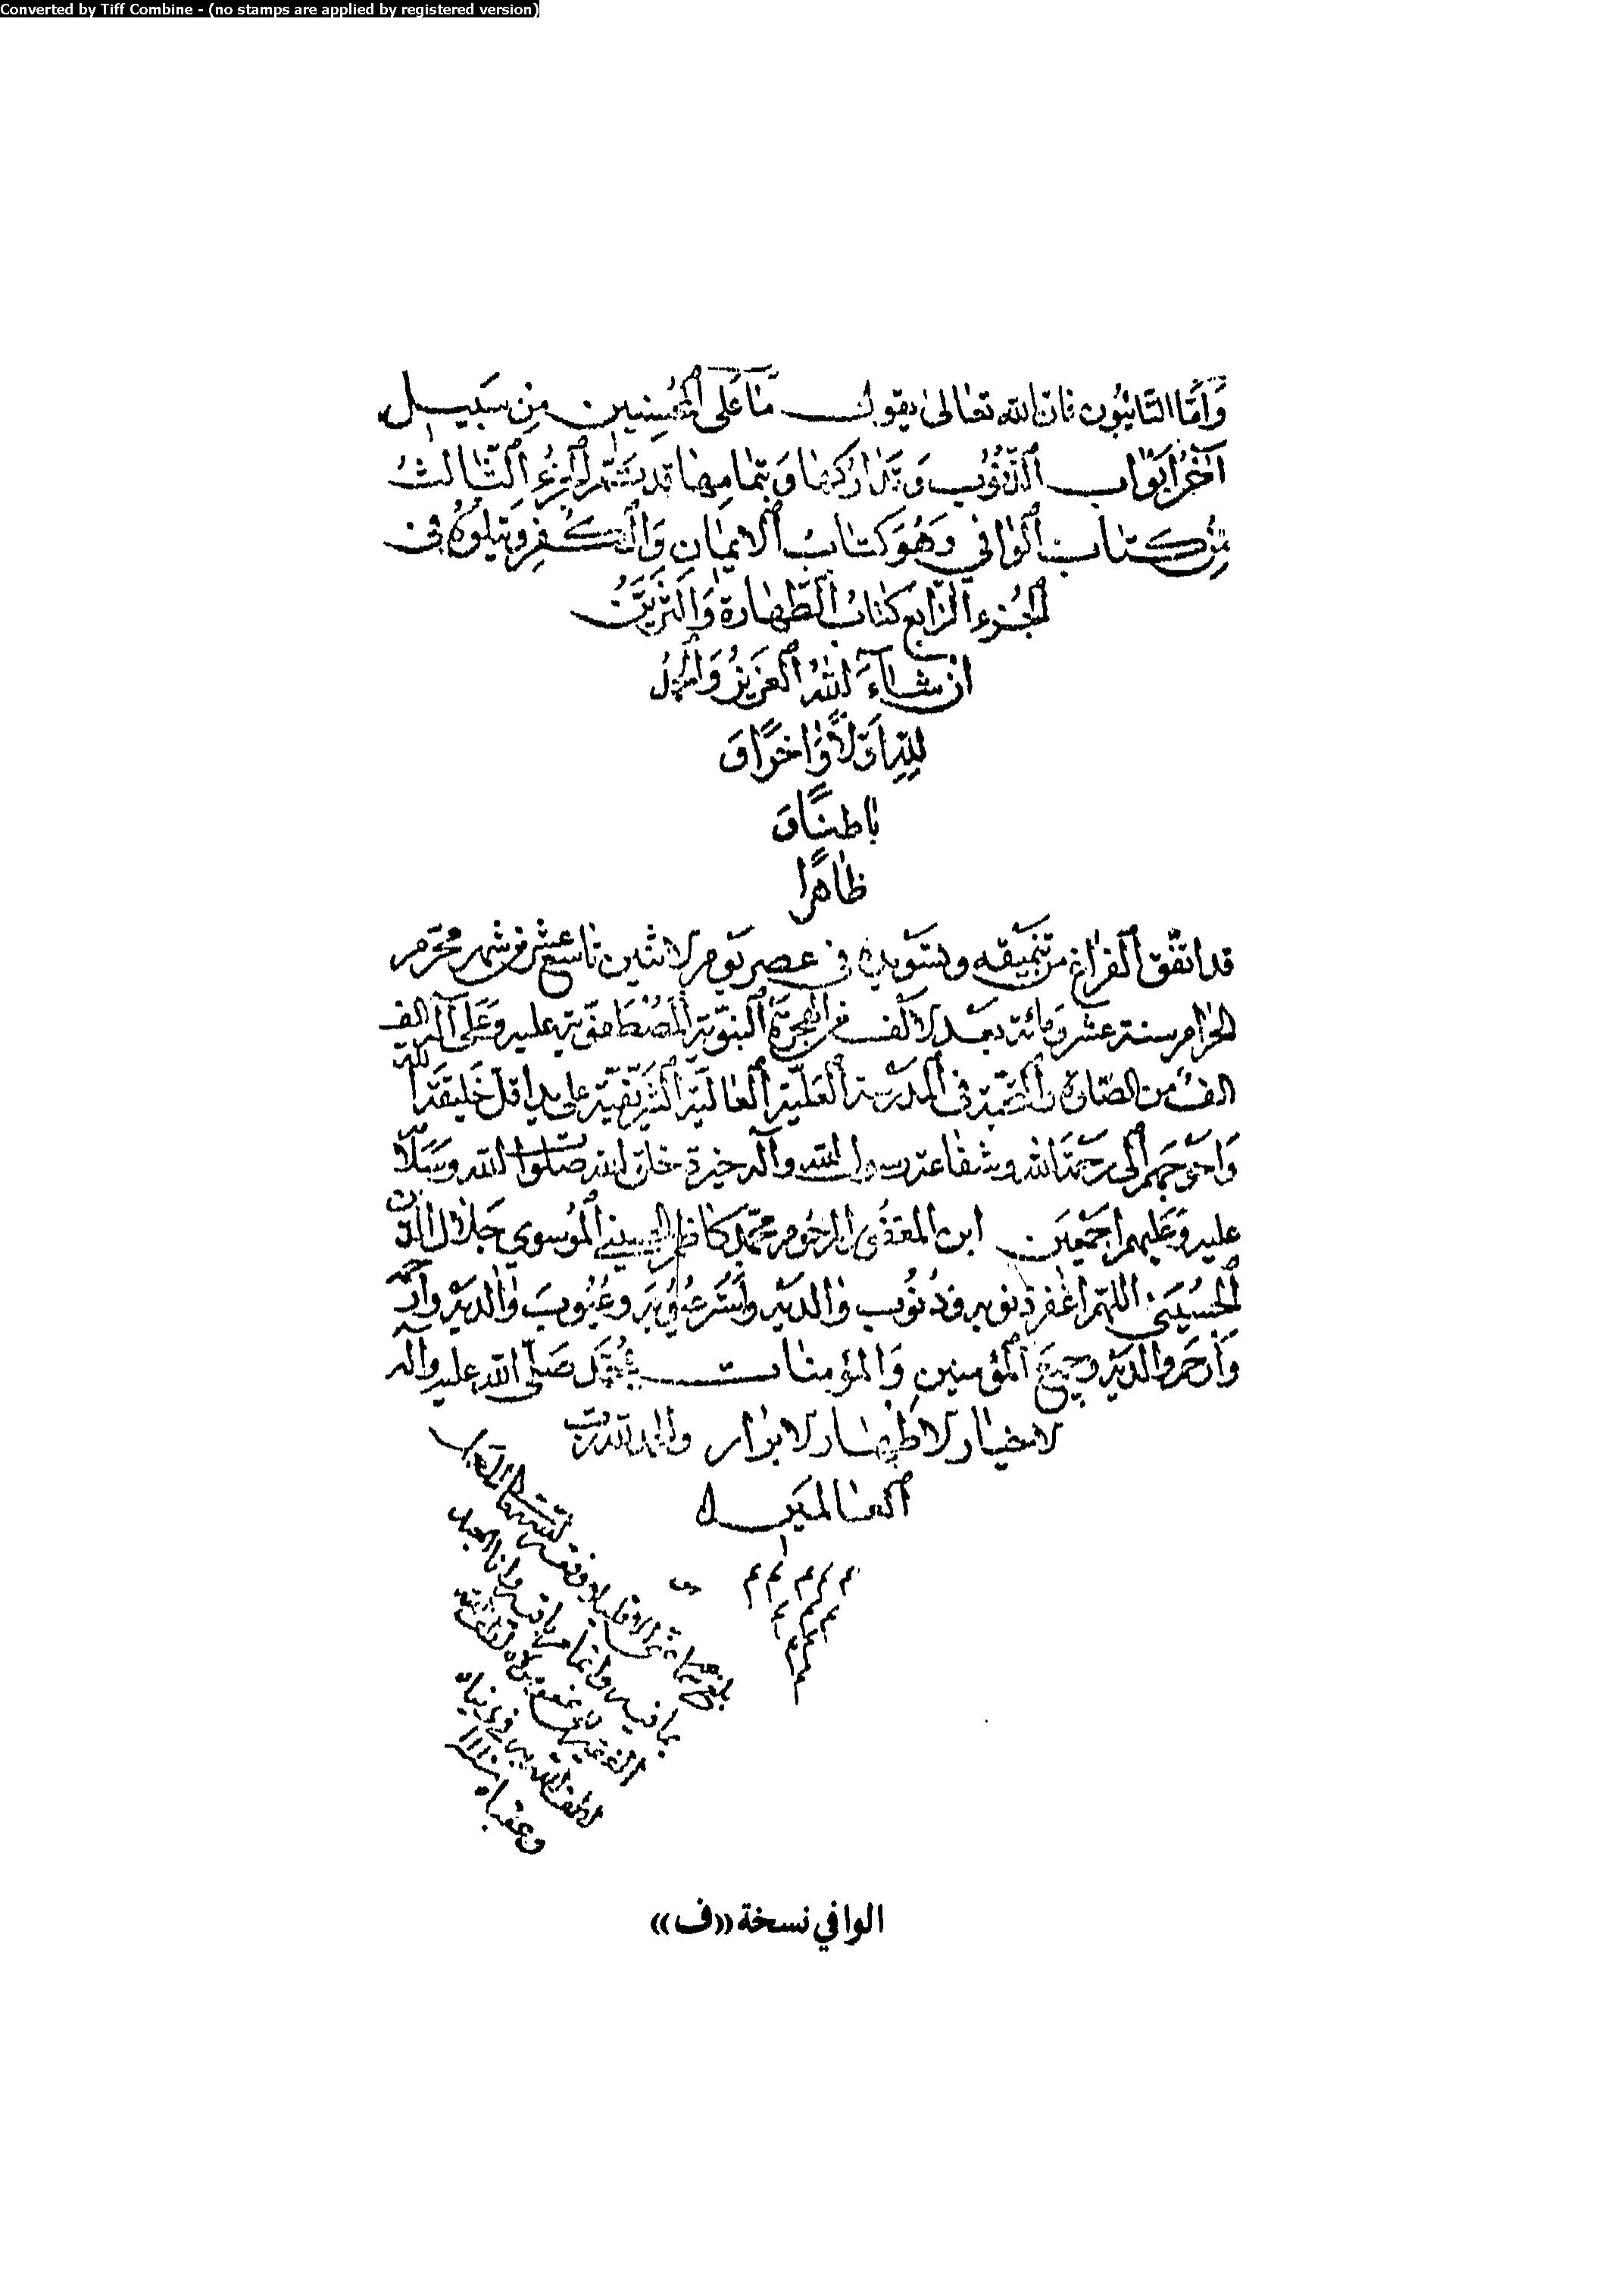 Converted by Tiff Combine - (no stamps are applied by registered version)
وَأَمَّا التَّائِبُون فان الله تعالىٰ يقول مَا عَلَى الْمُحْسِنِين مِن سَبِيل
آخر أبواب الذّنُوب وَتَدَارُكهَا وَبِتَمَامِهَا قد تَمّ الجزءُ الثَّالث
مِن كتاب الوافي وَهُوَ كتابُ الايمان وَالكفر وَيتلوهُ في
الجُزء الرّابع كتابُ الطّهارة وَالتزيّن
ان شآءَ اللهُ العَزيزُ وَالحمدُ
للهِ اوّلاً وَاخراً وَ
باطناً وَ
ظاهراً
قد اتّفق الفراغ من تنميقه وتسويده في عصر يَوم الاثنين تاسع عشر من شهر محرّم
الحرام سنة عشر ومائة بعد الالف من الهجرة النبَويّة المصْطفَويّة عليه وَعَلى آله الف
الف من الصّلوة والتحيّة في المدرسة العَليّة العالية على يد اقلّ خَليقة الله
وَاحوجهم الى رحمَة الله وشفاعة رسول الله وآله خيرة خلق الله صَلوات الله وسَلامه
عليه وَعَليهم اجمَعين ابن المرحُوم محمّد كاظم الحسيني المُوسوي جَلال الدّين
الحُسَيني اللهمّ اغفر ذنوبه وذنُوب والديْه واستر عيُوبه وعُيُوبَ والديْه وارحمه
وَارحم والديْه وجميعَ المؤمنين وَالمؤمنات بمحمّد صَلّى الله عليه وآله
الاخيار الاطهار الابرار والحمد لله ربّ
العالمين
الوافي نسخة «ف»